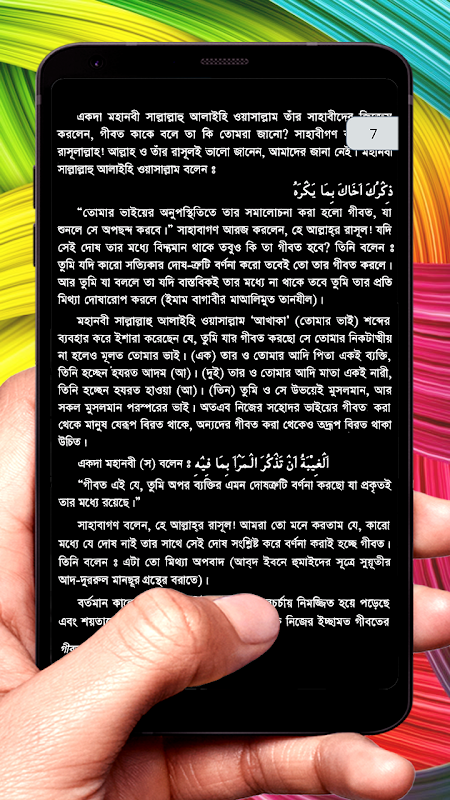 একদা মহানবী সাল্লাল্লাহু আলাইহি ওয়াসাল্লাম তাঁর সাহাবীদের
করলেন, গীবত কাকে বলে তা কি তোমরা জানো? সাহাবীগণ
7
রাসূলাল্লাহ! আল্লাহ ও তাঁর রাসূলই ভালো জানেন, আমাদের জানা নেই। মহানবী
সাল্লাল্লাহু আলাইহি ওয়াসাল্লাম বলেন ঃ
ذِكْرُكَ اَخَاكَ بِمَا يَكْرَهُ
“তোমার ভাইয়ের অনুপস্থিতিতে তার সমালোচনা করা হলো গীবত, যা
শুনলে সে অপছন্দ করবে।” সাহাবাগণ আরজ করলেন, হে আল্লাহ্‌র রাসূল! যদি
সেই দোষ তার মধ্যে বিদ্দমান থাকে তবুও কি তা গীবত হবে? তিনি বলেন ঃ
তুমি যদি কারো সত্যিকার দোষ-ত্রুটি বর্ণনা করো তবেই তো তার গীবত করলে।
আর তুমি যা বললে তা যদি বাস্তবিকই তার মধ্যে না থাকে তবে তুমি তার প্রতি
মিথ্যা দোষারোপ করলে (ইমাম বাগাবীর মাআলিমুত তানযীল)।
মহানবী সাল্লাল্লাহু আলাইহি ওয়াসাল্লাম ‘আখাকা’ (তোমার ভাই) শব্দের
ব্যবহার করে ইশারা করেছেন যে, তুমি যার গীবত করছো সে তোমার নিকটাত্মীয়
না হলেও মূলত তোমার ভাই। (এক) তার ও তোমার আদি পিতা একই ব্যক্তি,
তিনি হচ্ছেন হযরত আদম (আ)। (দুই) তার ও তোমার আদি মাতা একই নারী,
তিনি হচ্ছেন হযরত হাওয়া (আ)। (তিন) তুমি ও সে উভয়েই মুসলমান, আর
সকল মুসলমান পরস্পরের ভাই। অতএব নিজের সহোদর ভাইয়ের গীবত করা
থেকে মানুষ যেরূপ বিরত থাকে, অন্যদের গীবত করা থেকেও তদ্রূপ বিরত থাকা
উচিত।
একদা মহানবী (স) বলেন ঃ اَلْغِيْبَةُ اَنْ تَذْكُرَ الْمَرْأَ بِمَا فِيْهِ
“গীবত এই যে, তুমি অপর ব্যক্তির এমন দোষত্রুটি বর্ণনা করছো যা প্রকৃতই
তার মধ্যে রয়েছে।”
সাহাবাগণ বলেন, হে আল্লাহ্‌র রাসূল! আমরা তো মনে করতাম যে, কারো
মধ্যে যে দোষ নাই তার সাথে সেই দোষ সংশ্লিষ্ট করে বর্ণনা করাই হচ্ছে গীবত।
তিনি বলেন ঃ এটা তো মিথ্যা অপবাদ (আব্‌দ ইবনে হুমাইদের সূত্রে সুয়ূতীর
আদ-দুররুল মানছূর গ্রন্থের বরাতে)।
বর্তমান নিমজ্জিত হয়ে পড়েছে
এবং নিজের ইচ্ছামত গীবতের